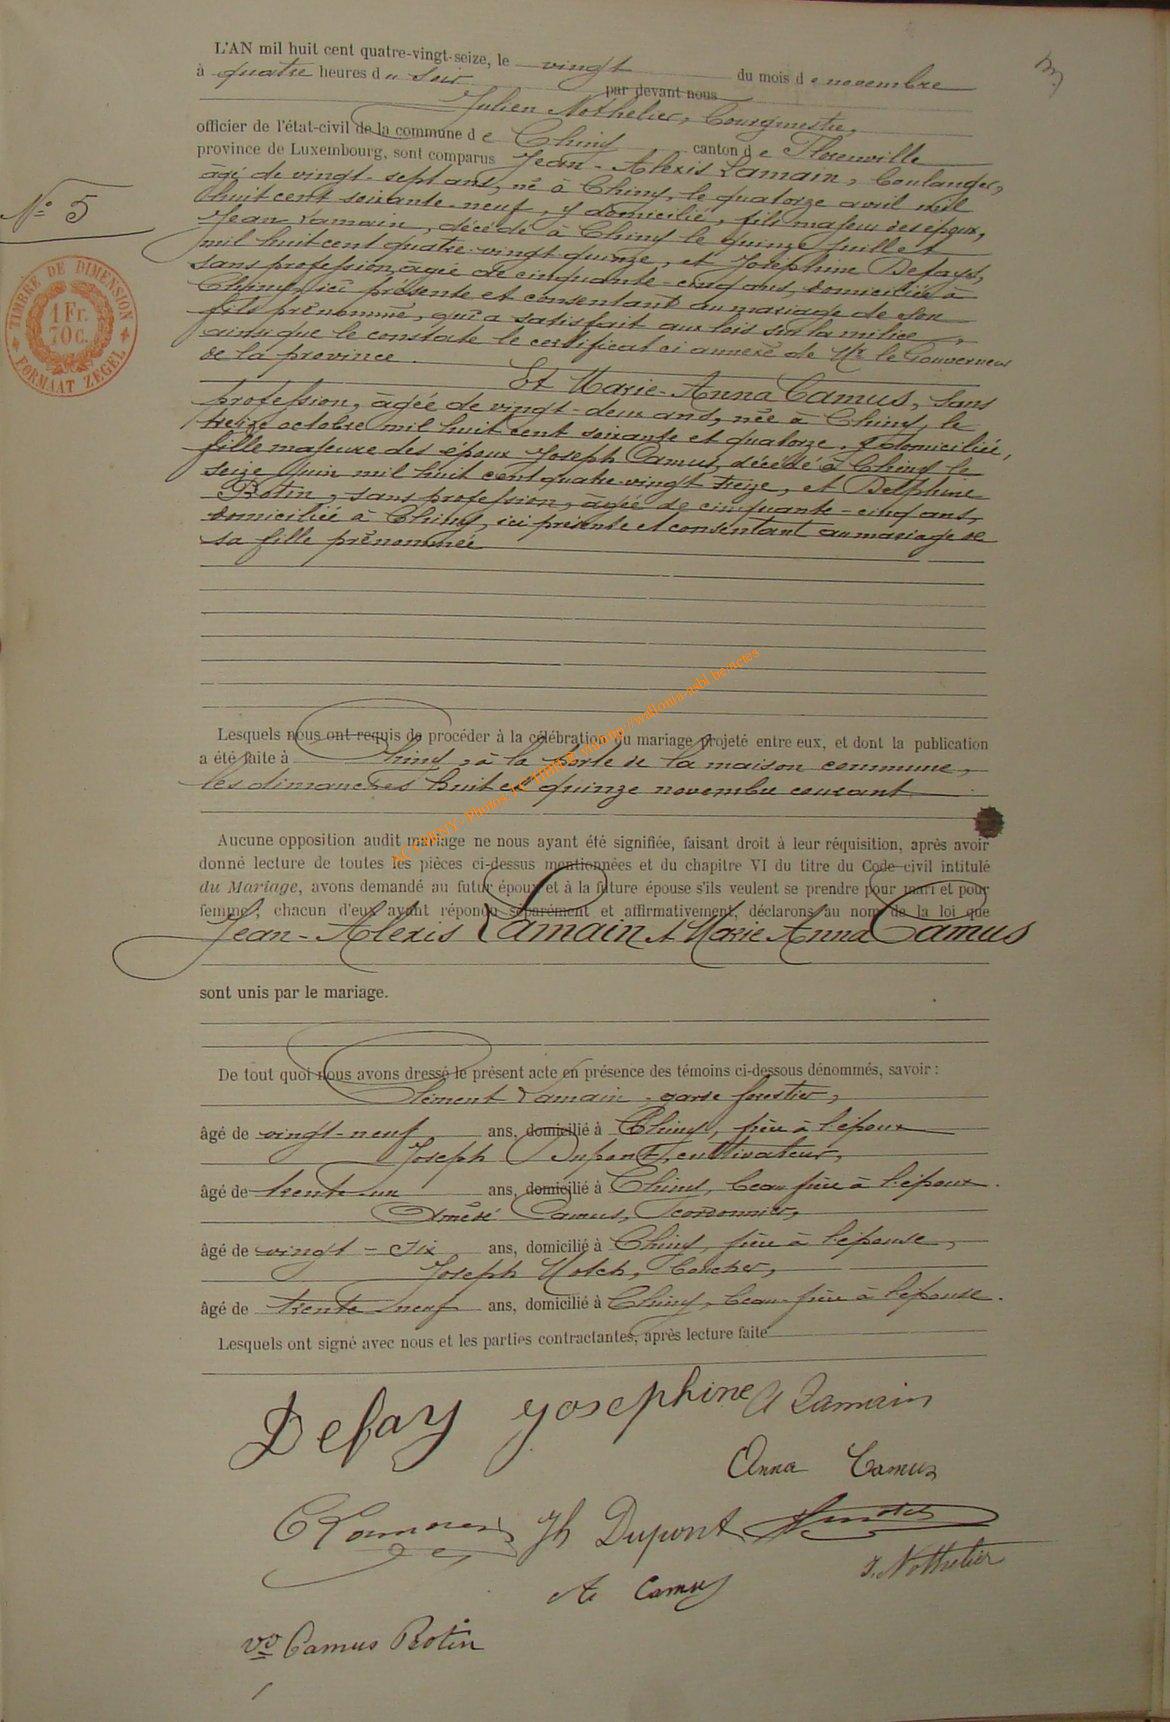 L'AN mil huit cent quatre-vingt-seize, le vingt du mois de novembre
à quatre heures du soir par devant nous
Julien Nothelier, Bourgmestre,
officier de l'état-civil de la commune de Chiny canton de Florenville
province de Luxembourg, sont comparus Jean-Alexis Lamain, boulanger,
âgé de vingt-sept ans, né à Chiny, le quatorze avril mil
huit cent soixante-neuf, y domicilié, fils majeur des époux,
Jean Lamain, décédé à Chiny le quinze juillet
mil huit cent quatre-vingt-quinze, et Joséphine Defays,
sans profession, âgée de cinquante-cinq ans, domiciliée à
Chiny, ici présente et consentant au mariage de son
fils prénommé, qui a satisfait aux lois sur la milice,
ainsi que le constate le certificat ci annexé de Mr le Gouverneur
de la province.
Et Marie-Anna Camus, sans
profession, âgée de vingt-deux ans, née à Chiny, le
treize octobre mil huit cent soixante et quatorze, y domiciliée,
fille majeure des époux Joseph Camus, décédé à Chiny le
seize juin mil huit cent quatre-vingt treize, et Delphine
Rotin, sans profession, âgée de cinquante-cinq ans,
domiciliée à Chiny, ici présente et consentant au mariage de
sa fille prénommée
N° 5
TIMBRE DE DIMENSION
1 Fr.
70 C.
FORMAAT ZEGEL
Lesquels nous ont requis de procéder à la célébration du mariage projeté entre eux, et dont la publication
a été faite à Chiny, à la porte de la maison commune,
les dimanches huit et quinze novembre courant
Aucune opposition audit mariage ne nous ayant été signifiée, faisant droit à leur réquisition, après avoir
donné lecture de toutes les pièces ci-dessus mentionnées et du chapitre VI du titre du Code civil intitulé
du Mariage, avons demandé au futur époux et à la future épouse s'ils veulent se prendre pour mari et pour
femme; chacun d'eux ayant répondu séparément et affirmativement, déclarons au nom de la loi que
Jean-Alexis Lamain et Marie Anna Camus
sont unis par le mariage.
De tout quoi nous avons dressé le présent acte en présence des témoins ci-dessous dénommés, savoir :
Clément Lamain, garde forestier,
âgé de vingt-neuf ans, domicilié à Chiny, frère à l'époux
Joseph Dupont, cultivateur,
âgé de trente-un ans, domicilié à Chiny, beau frère à l'époux.
Amédé Camus, cordonnier,
âgé de vingt-six ans, domicilié à Chiny, frère à l'épouse,
Joseph Hotch, cocher,
âgé de trente neuf ans, domicilié à Chiny, beau-frère à l'épouse.
Lesquels ont signé avec nous et les parties contractantes, après lecture faite
Defay Josephine A Lamain
Anna Camus
C Lamain Jh Dupont
J. Nothelier
A Camus
Ve Camus Rotin